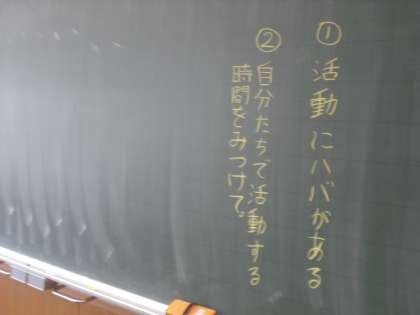 ① 活動にハバがある
② 自分たちで活動する
時間をみつけて。